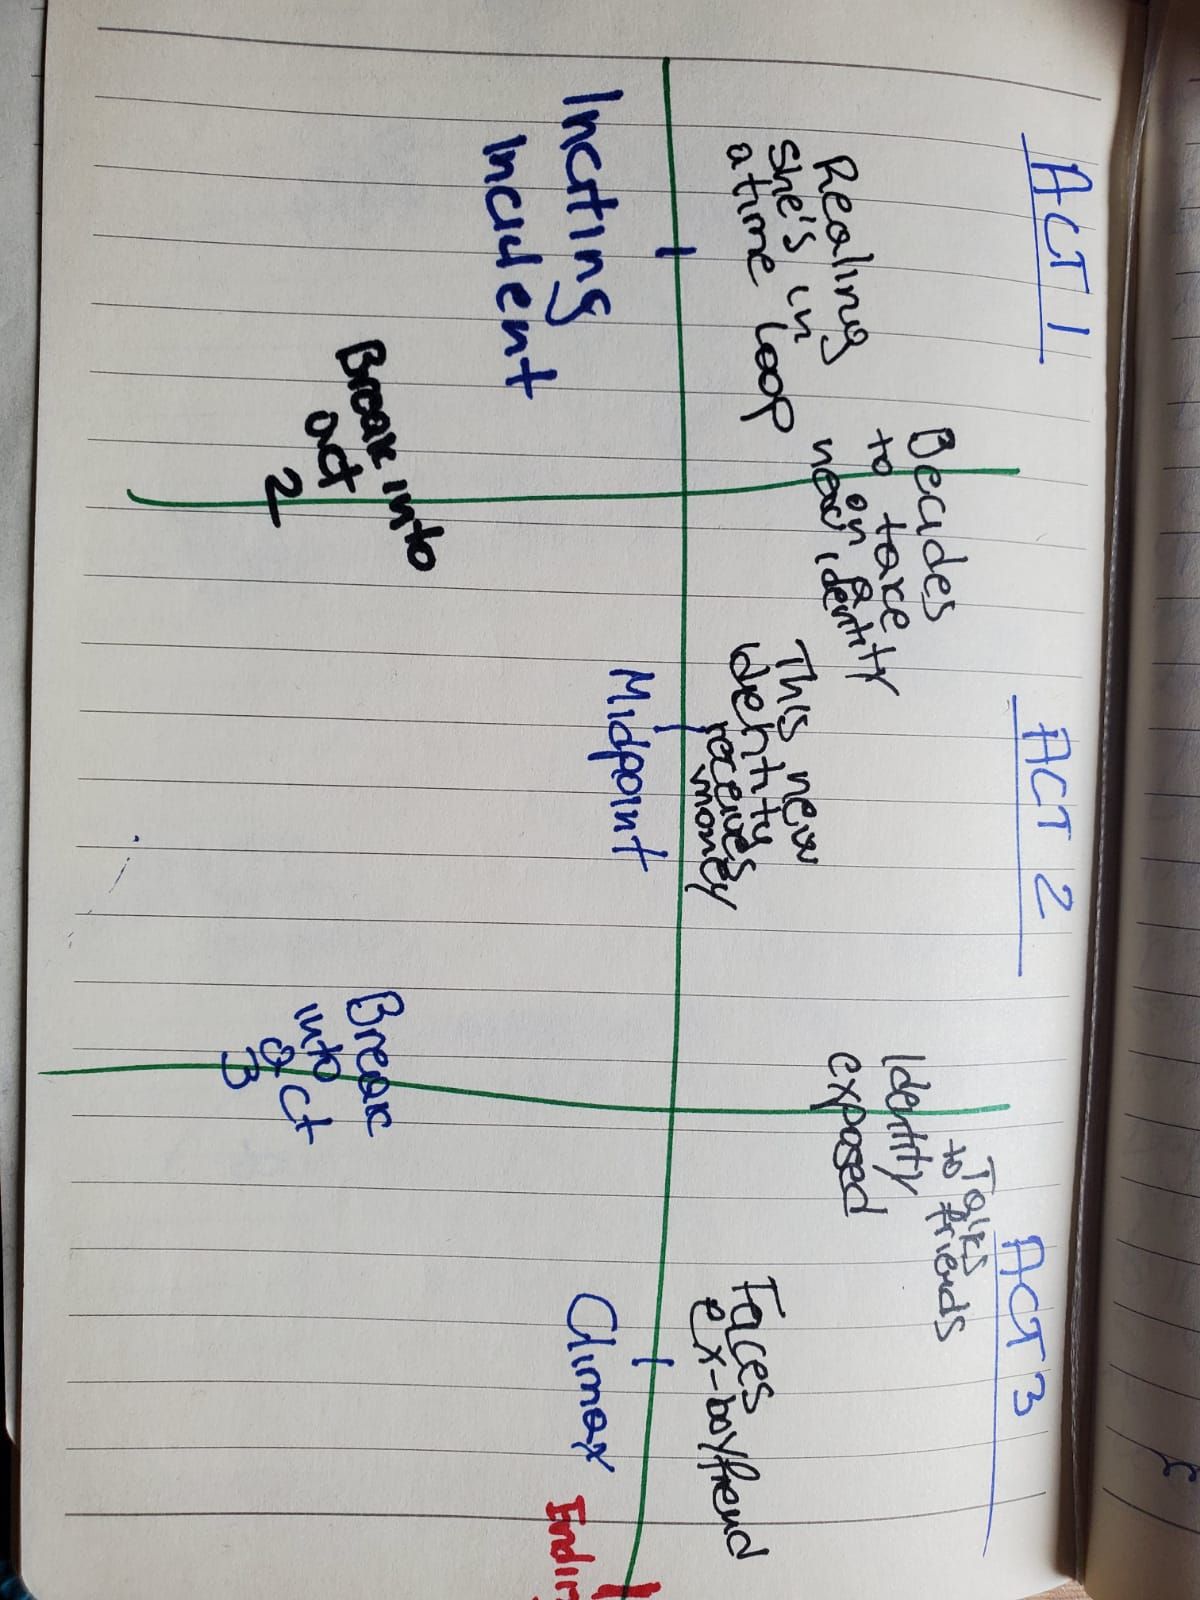 ACT 1
Realing
she's in
a time loop
Inciting
Incident
Decides
to take
on a
new identity
Break into
act
2
ACT 2
This new
identity
receives
money
Midpoint
Identity
exposed
Talks
to friends
Break
into
act
3
ACT 3
Faces
ex-boyfriend
Climax